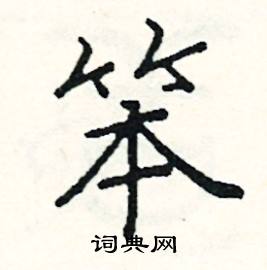 笨
词典网